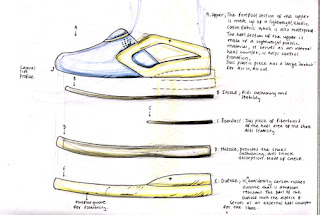 A. Upper, The forefoot section of the upper
is made up of a lightweight elastic,
fabric, which is also waterproof
The heel section of the upper is
made of a lightweight plastic
material, it serves as an internal
heel counter, it helps control
pronation.
This plastic piece has a large
for air in, air out
Lateral
Side
Profile
A
B
B. Insole, Aids cushioning and
stability.
C
C. This piece of fiberboard
in the heel area of the shoe
aids stability.
D
D. Midsole, provides the shoe's
cushioning, aids shock
absorption. Made of
E
E. Outsole, carbon rubber
outsole that is abrasion
resistant. The part of the
outsole with the # is
serves as an external heel counter
for the shoe.
for flexibility.